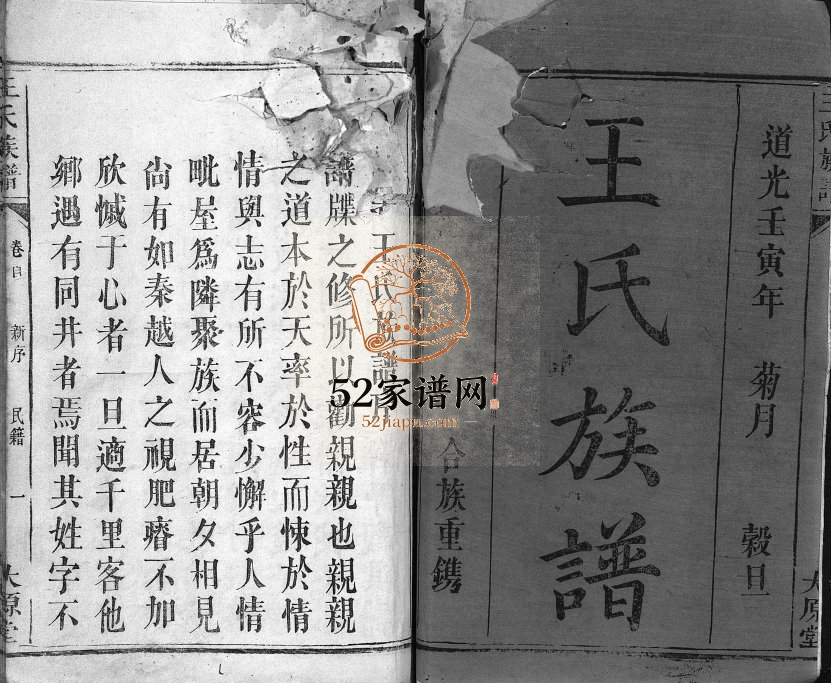 王氏族譜
道光壬寅年 菊月 榖旦
王氏族譜
合族重鐫
大原堂
王氏族譜
譜牒之修所以勸親親也親親
之道本於天率於性而悚於情
情與志有所不容少懈乎人情
毗屋爲隣聚族而居朝夕相見
尙有如秦越人之視肥瘠不加
欣慽于心者一旦適千里客他
鄉遇有同井者焉聞其姓字不
王氏族譜
卷首 新序 民籍 一
大原堂
52家谱网
52jiapu.com